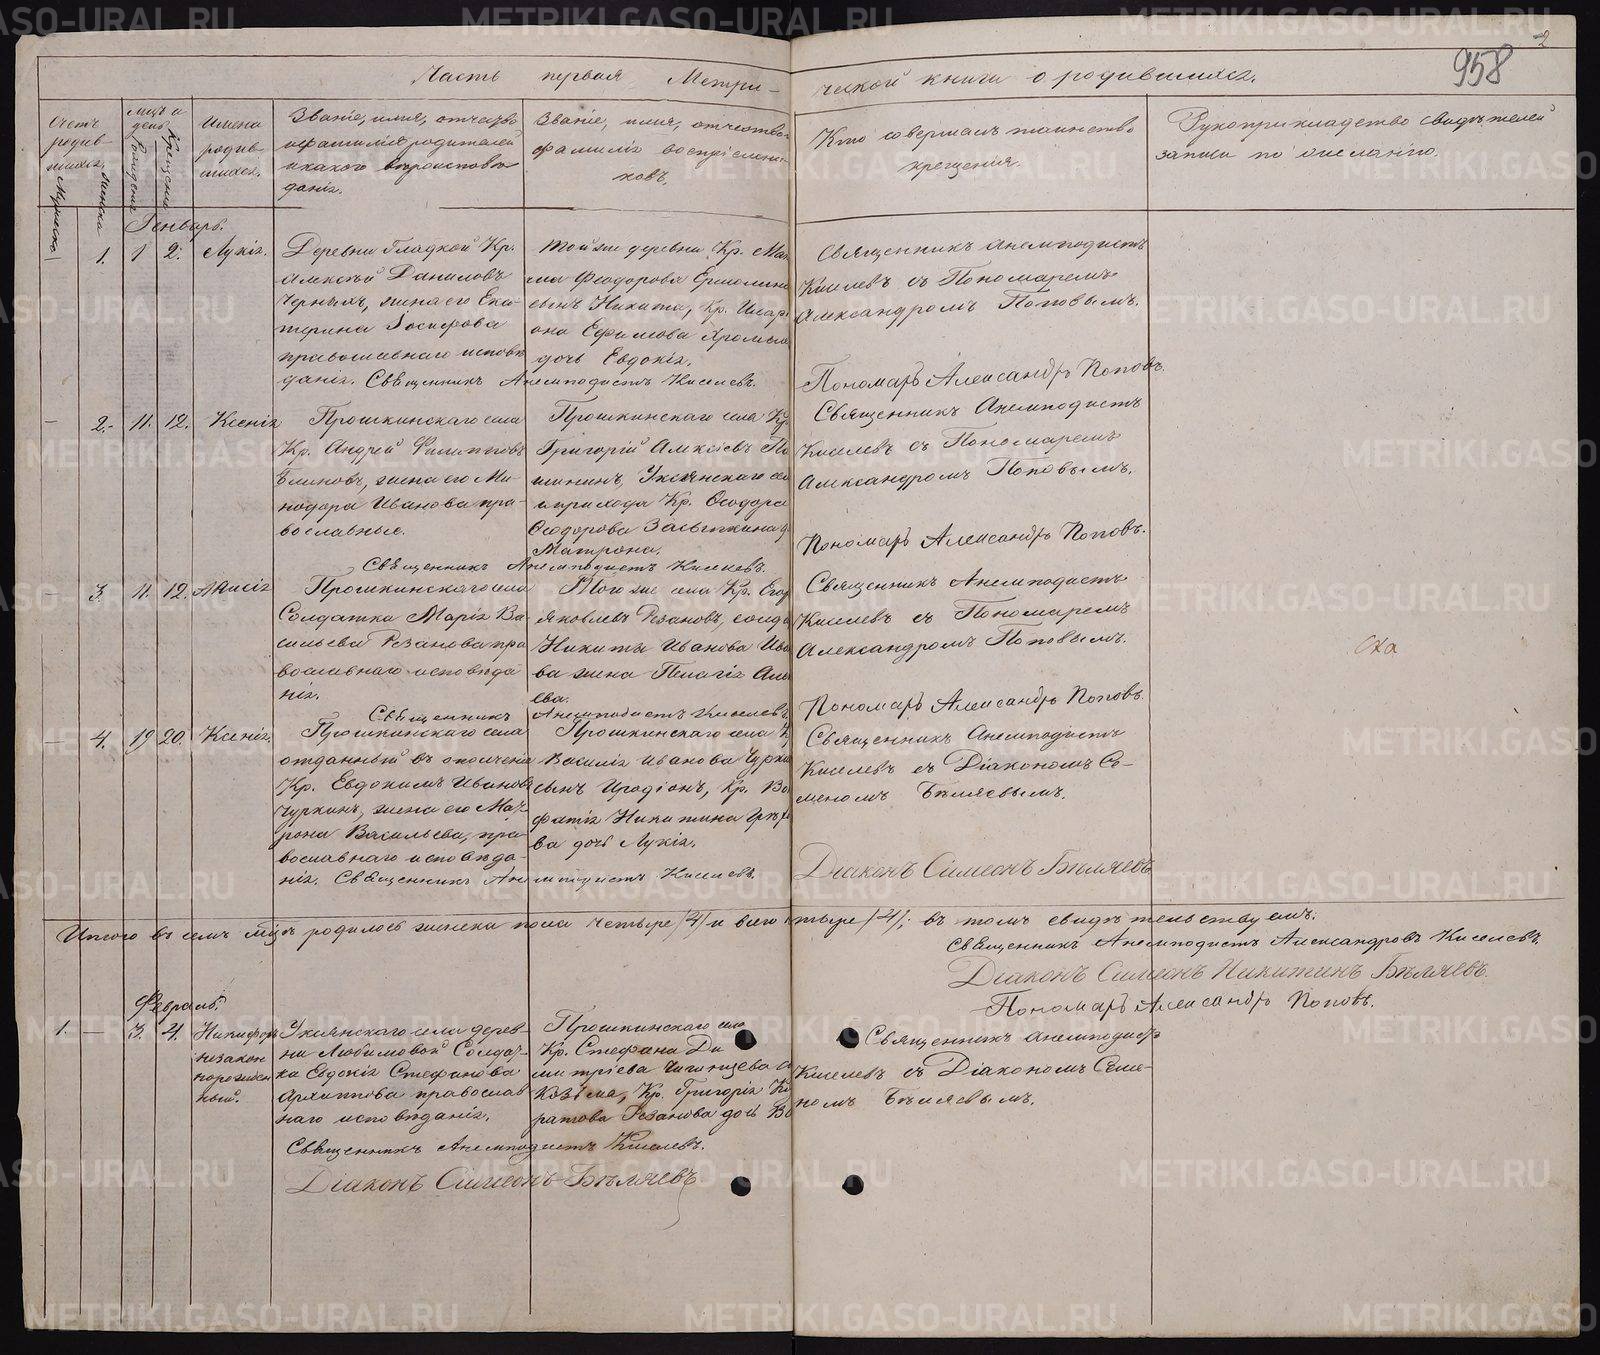 958
2
Часть первая Метри-
ческой книги о родившихся.
Счетъ родив-
шихся.
Мужеска
Женска
Мцъ и
день
Рожденія
Крещенія
Имена
родив-
шихся.
Званіе, имя, отчество
и фамилія родителей
и какого вѣроисповѣ
данія.
Званіе, имя, отчество
фамилія воспріемни-
ковъ.
Кто совершалъ таинство
крещенія.
Рукоприкладство свидѣтелей
записи по желанію.
Генварь.
— 1. 1 2. Лукія.
Деревни Гладкой Кр.
Алексѣй Даниловъ
Черныхъ, жена его Ека-
терина Іосифова
православнаго исповѣ
данія. Священникъ Анемподистъ Киселевъ.
Той же деревни Кр.
Феодорова
сынъ Никита, Кр.
она Ефимова
дочь Евдокія.
Священникъ Анемподистъ
Киселевъ съ Пономаремъ
Александромъ Поповымъ.
Пономарь Александръ Поповъ.
— 2. 11. 12. Ксенія
Прошкинскаго села
Кр. Андрей Филипповъ
Блиновъ, жена его Ми-
нодора Иванова пра-
вославные.
Прошкинскаго села Кр.
Григорій Алексіевъ
Уксянскаго
прихода Кр. Ѳеодора
Ѳеодорова
Матрона.
Священникъ Анемподистъ Киселевъ.
Священникъ Анемподистъ
Киселевъ съ Пономаремъ
Александромъ Поповымъ.
Пономарь Александръ Поповъ.
— 3. 11. 12.
Прошкинскаго села
Солдатка Марія Ва-
сильева Рѣзанова пра
вославнаго исповѣда
нія.
Священникъ Анемподистъ Киселевъ
Того же села Кр. Егор
Яковлевъ Рѣзановъ, солда
Никиты Иванова Ива
ва жена Пелагія Але
ева.
Священникъ Анемподистъ
Киселевъ съ Пономаремъ
Александромъ Поповымъ.
Пономарь Александръ Поповъ.
— 4. 19 20. Ксенія.
Прошкинскаго села
отданный въ ополчение
Кр. Евдокимъ Ивановъ
Чуркинъ, жена его Мат-
рона Васильева, пра-
вославнаго исповѣда-
нія. Священникъ Анемподистъ Киселевъ.
Прошкинскаго села К
Василія Иванова Чурки
сынъ Иродіонъ, Кр. Во
фатія Никитина
ва дочь Лукія.
Священникъ Анемподистъ
Киселевъ съ Діакономъ Се-
меномъ Бѣляевымъ.
Діаконъ Симеонъ Бѣляевъ
Итого въ семъ мцѣ родилось женска пола четыре /4/ и всего четыре /4/; въ томъ свидѣтельствуемъ:
Священникъ Анемподистъ Александровъ Киселевъ.
Діаконъ Симеонъ Никитинъ Бѣляевъ.
Пономарь Александръ Поповъ.
Февраль.
1. — 3. 4. Никифоръ
незакон
норожден
ный.
Уксянскаго села дерев-
ни Любимовой Солдат-
ка Евдокія Стефанова
Архипова православ
наго исповѣданія.
Священникъ Анемподистъ Киселевъ.
Діаконъ Симеонъ Бѣляевъ
Прошкинскаго села
Кр. Стефана Ди
митріева
Козьма, Кр. Григорія
Рѣзанова дочь
Священникъ Анемподистъ
Киселевъ съ Діакономъ Семе-
номъ Бѣляевымъ.
METRIKI.GASO-URAL.RU